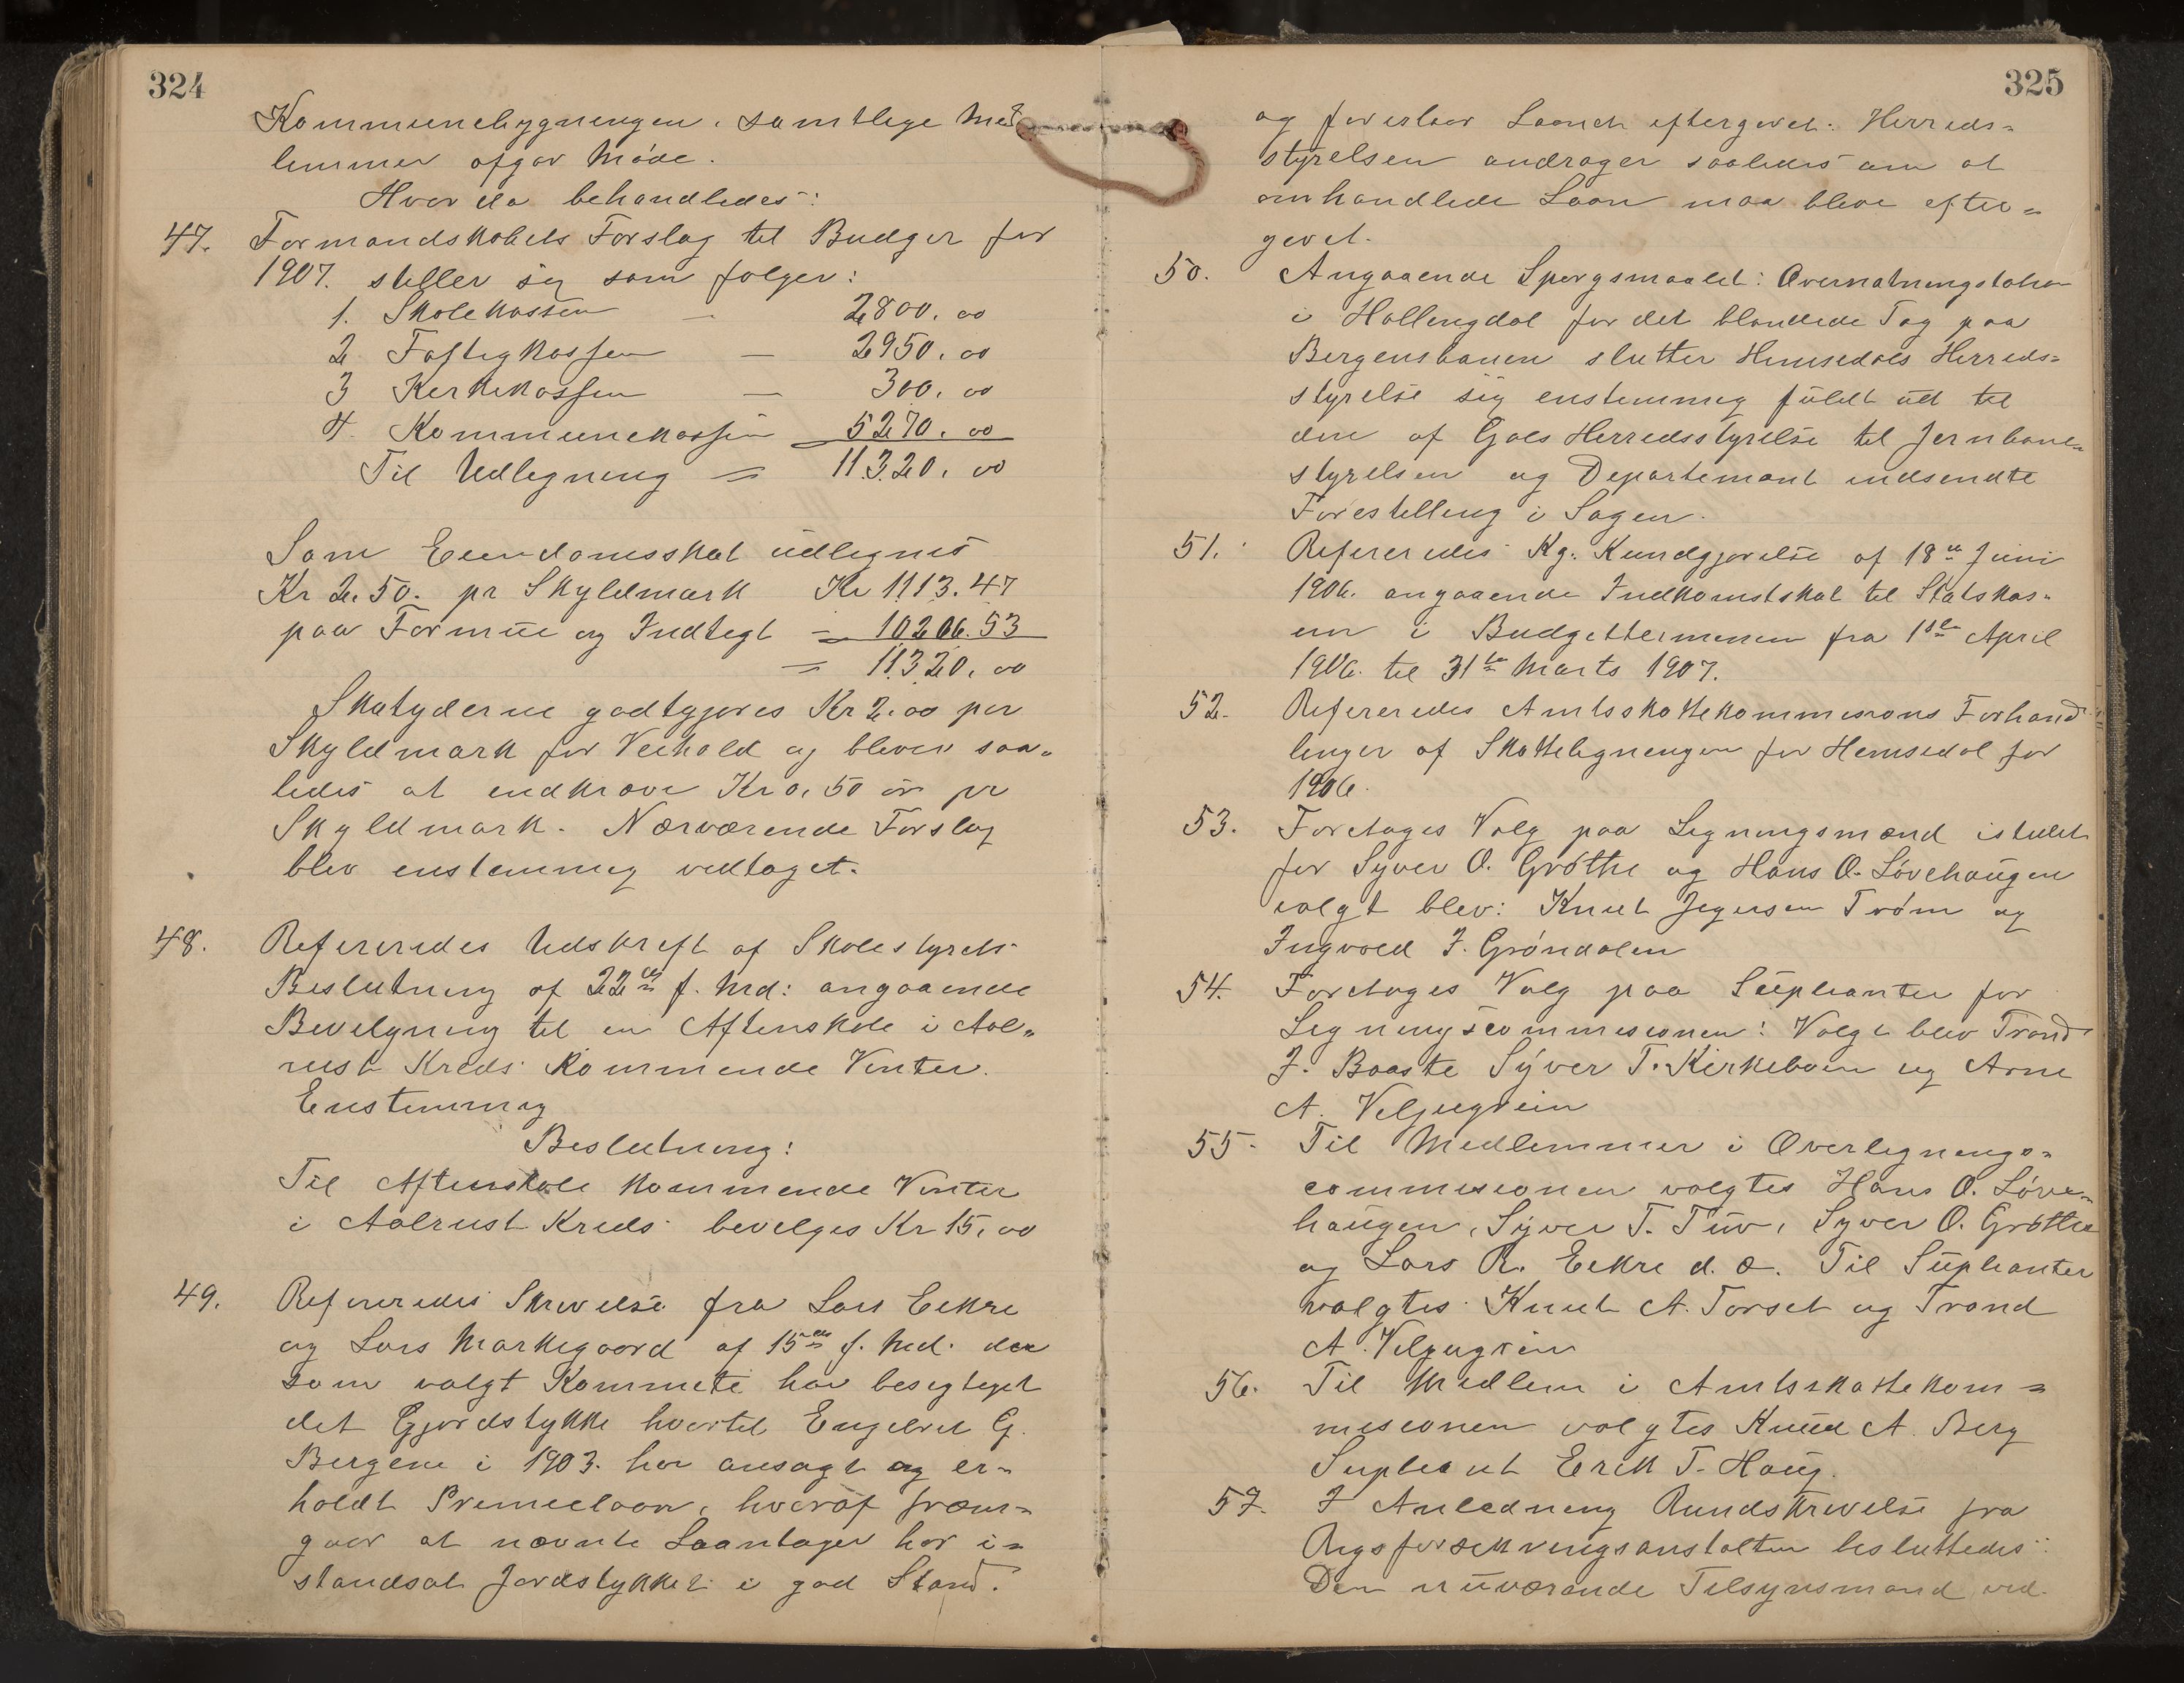 324
Kommunebygningen. Samtlige Med
lemmer afgav Møde.
Hvor da behandledes:
47. Formandskabets Forslag til Budget for
1907. stiller sig som følger:
1. Skolekassen – 2800.00
2 Fattigkassen – 2950.00
3 Kirkekassen – 300.00
4. Kommunekassen 5270.00
Til Udlegning = 11320.00
Som Eiendomsskat udlignes
Kr 2.50. pr Skyldmark Kr 1113.47
paa Formue og Indtegt = 10206.53
= 11320.00
Skatyderne godtgjøres Kr 2.00 per
Skyldmark for Veihold og bliver saa-
ledes at indkræve Kr 0,50 ør pr
Skyldmark. Nærværende Forslag
blev enstemmig vedtaget.
48. Refereredes Udskrift af Skolestyrets
Beslutning af 22de f. Md: angaaende
Bevilgning til en Aftenskole i Aal-
rust Kreds Kommende Vinter.
Enstemmig
Beslutning:
Til Aftenskole Kommende Vinter
i Aalrust Kreds bevilges Kr 15,00
49. Refereredes Skrivelse fra Lars Eekre
og Lars Markegaard af 15de f. Md. der
som valgt Kommite har besigtiget
det Gjordstykke hvortil Engebret G.
Bergene i 1903. har ansøgt og er-
holdt Premielaan, hvoraf fræm-
gaar at nævnte Laantager har i-
standsat Jordstykket i god Stand.
325
og foreslaar Laanet eftergivet. Herreds-
styrelsen andrager saaledes om at
omhandlede Laan maa blive efter-
givet.
50. Angaaende Spørgsmaalet: Overnatningstation
i Hallingdal for det blandede Tog paa
Bergensbanen slutter Hemsedals Herreds-
styrelse sig enstemmig fuldt ud til
den af Gols Herredsstyrelse til Jernbane-
styrelsen og Departemant indsendte
Forestilling i Sagen.
51. Refereredes Kg. Kundgjørelse af 18de Juni
1906. angaaende Indkomstskat til Statskas-
en i Budgetterminen fra 1ste April
1906. til 31te Marts 1907.
52. Refereredes Amtsskattekommisions Forhand
linger af Skattelegningen for Hemsedal for
1906.
53. Foretages Valg paa Legningsmænd istedet
for Syver O. Grøthe og Hans O. Løvehaugen
valgt blev: Knut Jegersen Trøm og
Ingvald J. Grøndalen
54. Foretages Valg paa Supleanter for
Legningscommisionen: Valgt blev Trond
J. Baaste Syver T. Kirkeboen og Arne
A. Veljugrein
55. Til Medlemmer i Overlegnings-
commisionen valgtes Hans O. Løve-
haugen, Syver T. Tuv, Syver O. Grøthe
og Lars R. Eekre d. æ. Til Supleanter
valgtes Knut A. Torset og Trond
A. Veljugrein
56. Til Medlem i Amtsskattekom-
misionen valgtes Knud A. Berg
Supleant Erik T. Haug.
57. I Anledning Rundskrivelse fra
Rigsforsekringsanstalten besluttedes:
Den nuværende Tilsynsmand ved